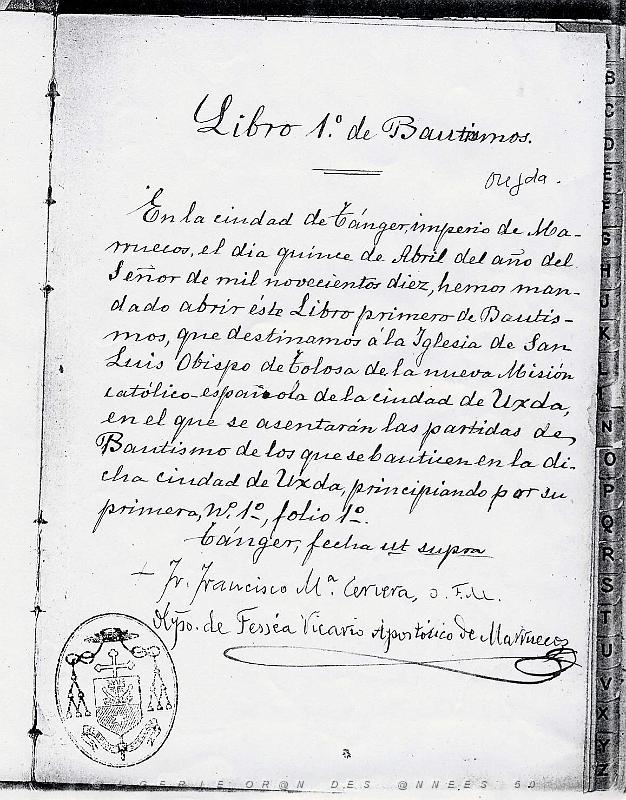 Libro 1.º de Bautismos.
Oujda.
En la ciudad de Tánger, imperio de Ma-
rruecos, el día quince de Abril del año del
Señor de mil novecientos diez, hemos man-
dado abrir éste Libro primero de Bautis-
mos, que destinamos á la Iglesia de San
Luis Obispo de Tolosa de la nueva Misión
católico-española de la ciudad de Uxda,
en el que se asentarán las partidas de
Bautismo de los que se bauticen en la di-
cha ciudad de Uxda, principiando por su
primera, Nº. 1º, folio 1º.
Tánger, fecha ut supra
+ Fr. Francisco Mª. Cervera, O. F. M.
Obpo. de Fessea Vicario Apostólico de Marruecos
ALGERIE OR@N DES @NNEES 50
A
B
C
D
E
F
G
H
J
K
L
N
O
P
Q
R
S
T
U
V
X
Y
Z